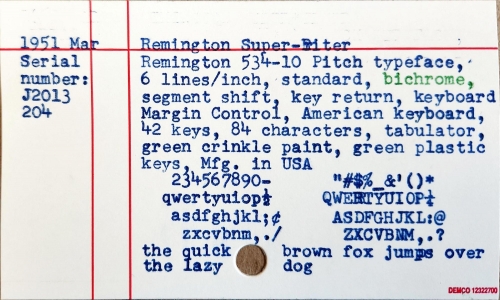 1951 Mar Remington Super-Riter
Serial Remington 534-10 Pitch typeface,
number: 6 lines/inch, standard, bichrome,
J2013 segment shift, key return, keyboard
204 Margin Control, American keyboard,
42 keys, 84 characters, tabulator,
green crinkle paint, green plastic
keys, Mfg. in USA
234567890- "#$%_&'()*
qwertyuiop½ QWERTYUIOP¼
asdfghjkl;¢ ASDFGHJKL:@
zxcvbnm,./ ZXCVBNM,.?
the quick brown fox jumps over
the lazy dog
DEMCO 12322700